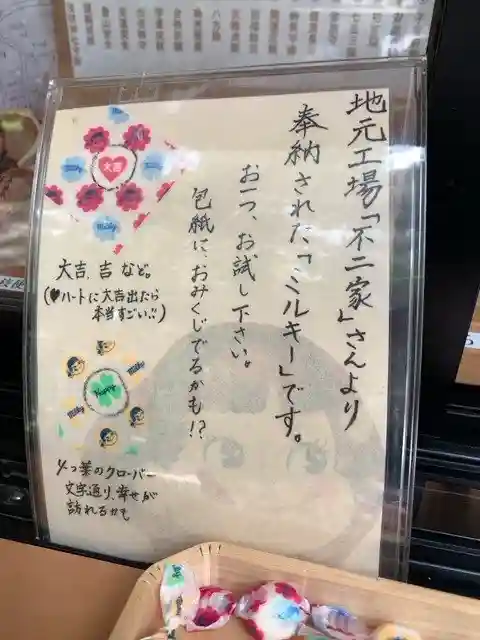 地元工場「不二家」さんより
奉納された、「ミルキー」です。
お一つ、お試し下さい。
包紙に、おみくじでるかも!?
大吉
Milky
Milky
Milky
大吉、吉など。
(♥ハートに大吉出たら
本当すごい!!)
Milky
Happy
Milky
Milky
4つ葉のクローバー
文字通り、幸せが
訪れるかも